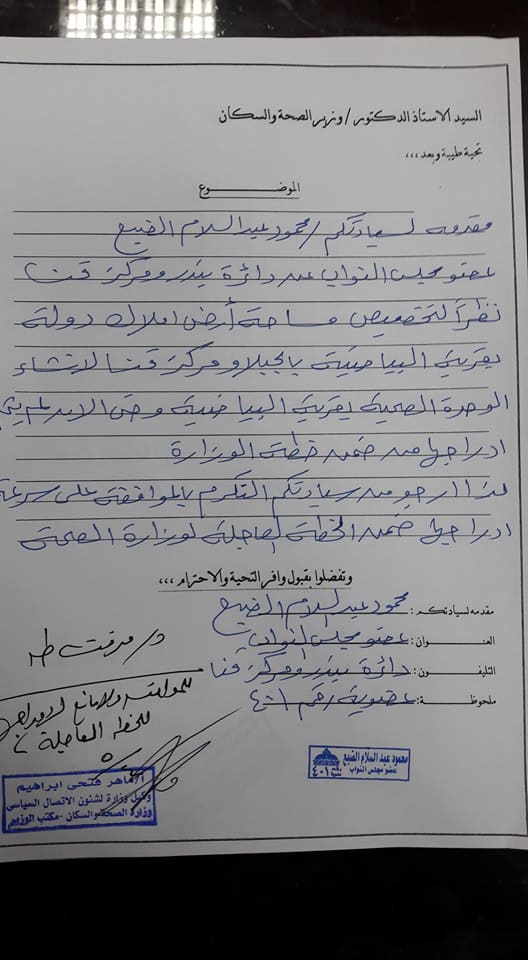 السيد الاستاذ الدكتور/ وزير الصحة والسكان
تحية طيبة وبعد ,,,
الموضوع
مقدمه لسيادتكم / محمود عبد السلام الضبع
عضو مجلس النواب عن دائرة بندر ومركز قنا
نظراً لتخصيص مساحة أرض املاك دولة
بقرية البياضية بالجبلاو مركز قنا لانشاء
الوحدة الصحية بقرية البياضية وحتى الان لم يتم
ادراجها من ضمن خطة الوزارة
لذا ارجو من سيادتكم التكرم بالموافقة على سرعة
ادراجها ضمن الخطة العاجلة لوزارة الصحة
وتفضلوا بقبول وافر التحية والاحترام ,,,
مقدمه لسيادتكم : محمود عبد السلام الضبع
العنوان : عضو مجلس النواب
التليفون : دائرة بندر ومركز قنا
ملحوظة : عضوية رقم ٤٠١
د/ مرفت طه
للخطة العاجلة
محمود عبد السلام الضبع
عضو مجلس النواب
٤٠١
أ/ماهر فتحى ابراهيم
وكيل وزارة لشئون الاتصال السياسى
وزارة الصحة والسكان - مكتب الوزير